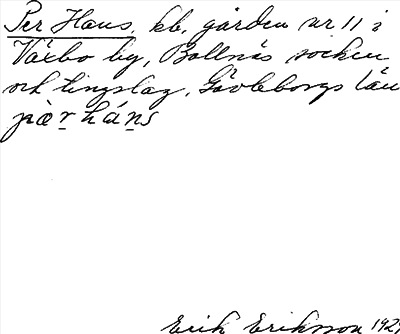 Per Hans, kb. gården nr 11 i
Växbo by, Bollnäs socken
och tingslag, Gävleborgs län
pæ̀r háns
Erik Eriksson